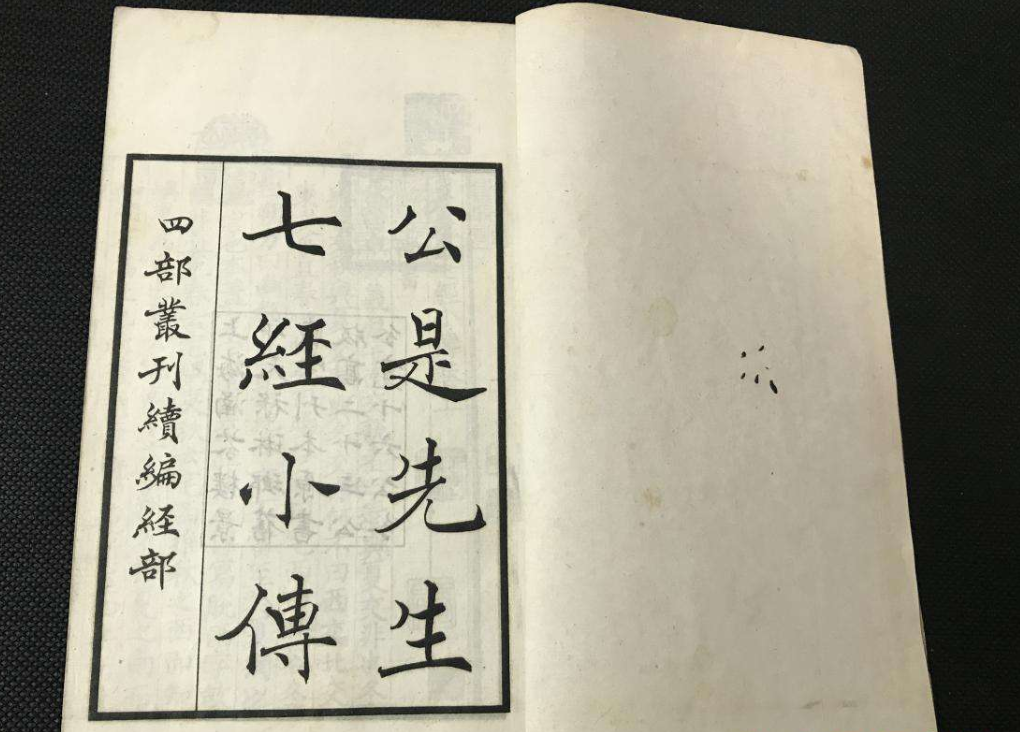 公是先生
七經小傳
四部叢刊續編经部